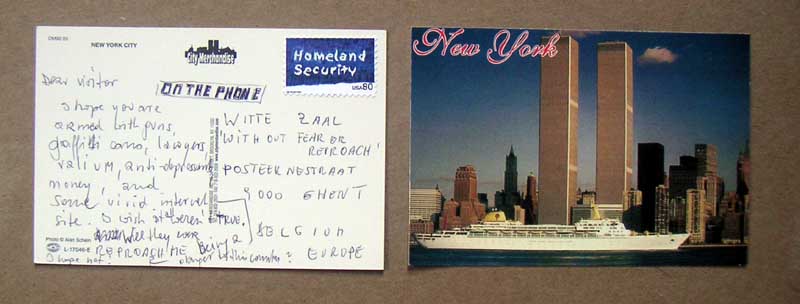 NEW YORK CITY
City Merchandise
ON THE PHONE
Homeland
Security
USA 80
Dear visitor
I hope you are
armed with guns,
graffiti cans, lawyers,
valium, anti-depressiva
money, and
some vivid internet
site. I wish it weren't TRUE.
Will they ever
REPROACH ME Being a
I hope not. danger to this country?
WITTE ZAAL
WITHOUT FEAR OR
REPROACH!
POSTEERNESTRAAT
9000 GHENT
BELGIUM
EUROPE
Photo © Alan Schein
L-17046-E
New York